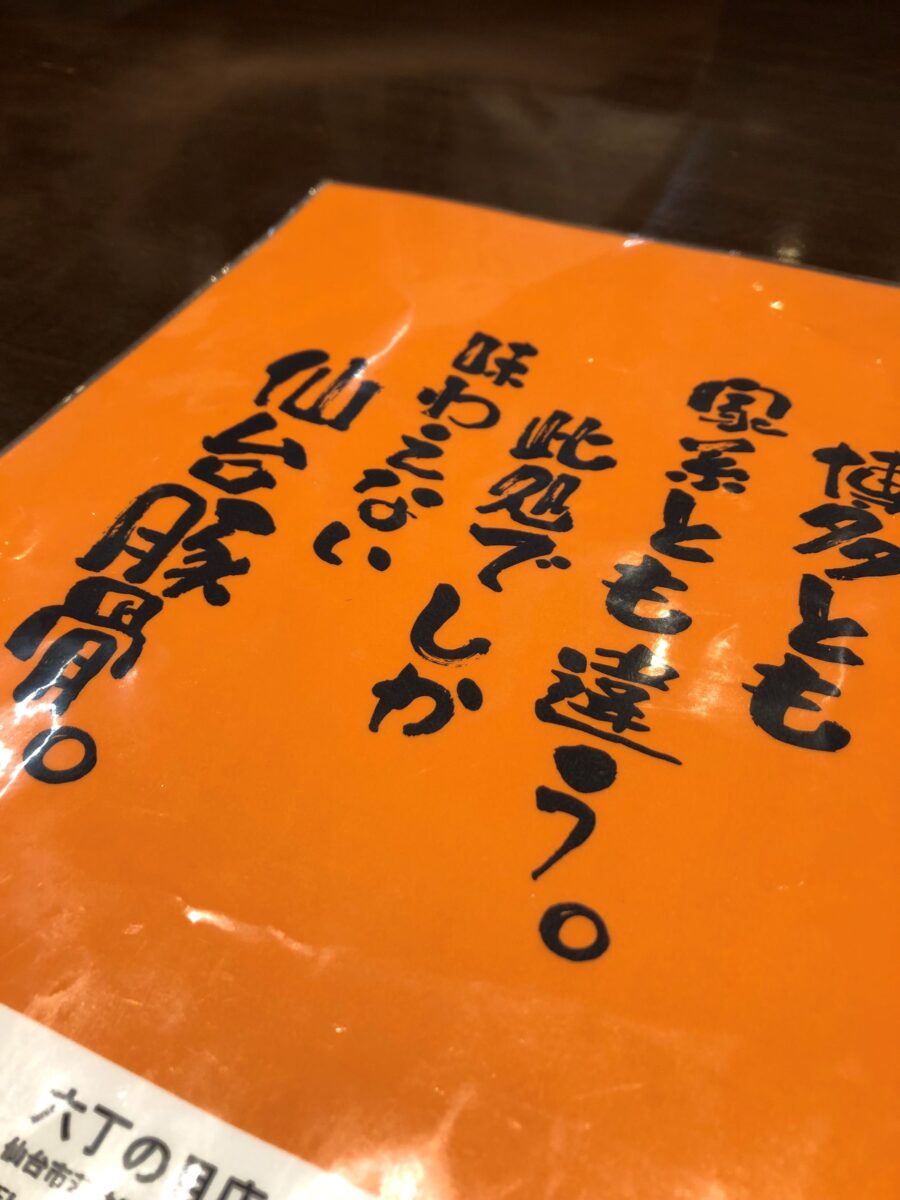 博多とも
家系とも違う。
此処でしか
味わえない
仙台豚骨。
六丁の目店
仙台市